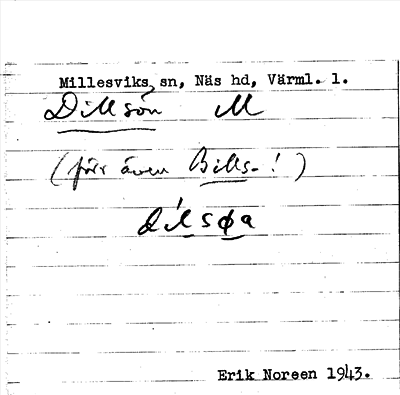 Millesviks sn, Näs hd, Värml. l.
Dillsön M
(förr även Bills- ! )
dilsøa
Erik Noreen 1943.